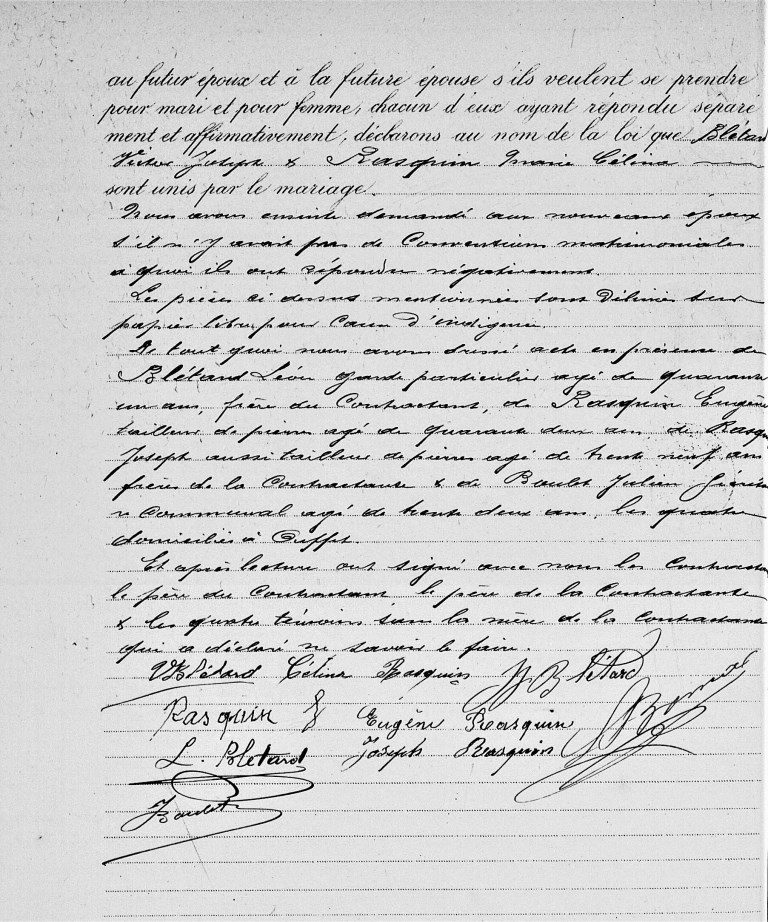 au futur époux et à la future épouse s'ils veulent se prendre
pour mari et pour femme, chacun d'eux ayant répondu séparé
ment et affirmativement, déclarons au nom de la loi que Blétard
Victor Joseph & Rasquin Marie Célina
sont unis par le mariage.
Nous avons ensuite demandé aux nouveaux époux
s'il n'y avait pas de Conventions matrimoniales
à quoi ils ont répondu négativement.
Les pièces ci dessus mentionnées sont délivrées sur
papier libre pour cause d'indigence.
De tout quoi nous avons dressé acte en présence de
Blétard Léon garde particulier agé de quarante
un ans, frère du Contractant, de Rasquin Eugène
tailleur de pierres agé de quarante deux ans de Rasqu
Joseph aussi tailleur de pierres agé de trente neuf ans
frère de la Contractante & de Boulet Julien
communal agé de trente deux ans, les quatre
domiciliés à Ouffet.
Et après lecture ont signé avec nous les Contracta
le père du Contractant, le père de la Contractante
& les quatre témoins sauf la mère de la Contractante
qui a déclaré ne savoir le faire.
V Blétard Célina Rasquin J B létard
Rasquin Eugène Rasquin
L. Bletard Joseph Rasquin
J Boulet